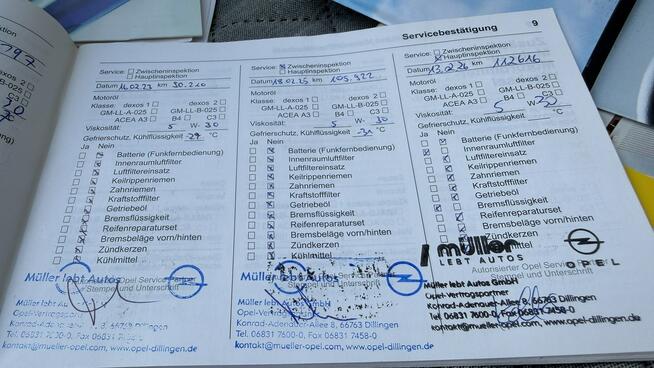 Servicebestätigung 9
Service: Zwischeninspektion
Hauptinspektion
Datum 16.02.23 km 30.210
Motoröl
Klasse: dexos 1 dexos 2
GM-LL-A-025 GM-LL-B-025
ACEA A3 B4 C3
Viskosität: 5 W- 30
Gefrierschutz, Kühlflüssigkeit °C
Ja Nein
Batterie (Funkfernbedienung)
Innenraumluftfilter
Luftfiltereinsatz
Keilrippenriemen
Zahnriemen
Kraftstofffilter
Getriebeöl
Bremsflüssigkeit
Reifenreparaturset
Bremsbeläge vorn/hinten
Zündkerzen
Kühlmittel
Müller lebt Autos
Opel Service
Stempel und Unterschrift
OPEL
Müller lebt Autos
Opel-Vertragspartner
66763 Dillingen
Tel. 06831 7600-0, Fax 06831 7458-0
kontakt@mueller-opel.com, www.opel-dillingen.de
Service: Zwischeninspektion
Hauptinspektion
Datum 18.02.25 km 105.922
Motoröl
Klasse: dexos 1 dexos 2
GM-LL-A-025 GM-LL-B-025
ACEA A3 B4 C3
Viskosität: 5 W- 30
Gefrierschutz, Kühlflüssigkeit -31 °C
Ja Nein
Batterie (Funkfernbedienung)
Innenraumluftfilter
Luftfiltereinsatz
Keilrippenriemen
Zahnriemen
Kraftstofffilter
Getriebeöl
Bremsflüssigkeit
Reifenreparaturset
Bremsbeläge vorn/hinten
Zündkerzen
Kühlmittel
Stempel und Unterschrift
Müller lebt Autos
Konrad-Adenauer-Allee 8, 66763 Dillingen
Tel. 06831 7600-0, Fax 06831 7458-0
kontakt@mueller-opel.com, www.opel-dillingen.de
Service: Zwischeninspektion
Hauptinspektion
Datum 13.2.26 km 112616
Motoröl
Klasse: dexos 1 dexos 2
GM-LL-A-025 GM-LL-B-025
ACEA A3 B4 C3
Viskosität: 5 W- 30
Gefrierschutz, Kühlflüssigkeit °C
Ja Nein
Batterie (Funkfernbedienung)
Innenraumluftfilter
Luftfiltereinsatz
Keilrippenriemen
Zahnriemen
Kraftstofffilter
Getriebeöl
Bremsflüssigkeit
Reifenreparaturset
Bremsbeläge vorn/hinten
Zündkerzen
müller
LEBT AUTOS
OPEL
Autorisierter Opel Service
Stempel und Unterschrift
Müller lebt Autos GmbH
Opel-Vertragspartner
Konrad-Adenauer-Allee 8, 66763 Dillingen
Tel. 06831 7600-0, Fax 06831 7458-0
kontakt@mueller-opel.com, www.opel-dillingen.de